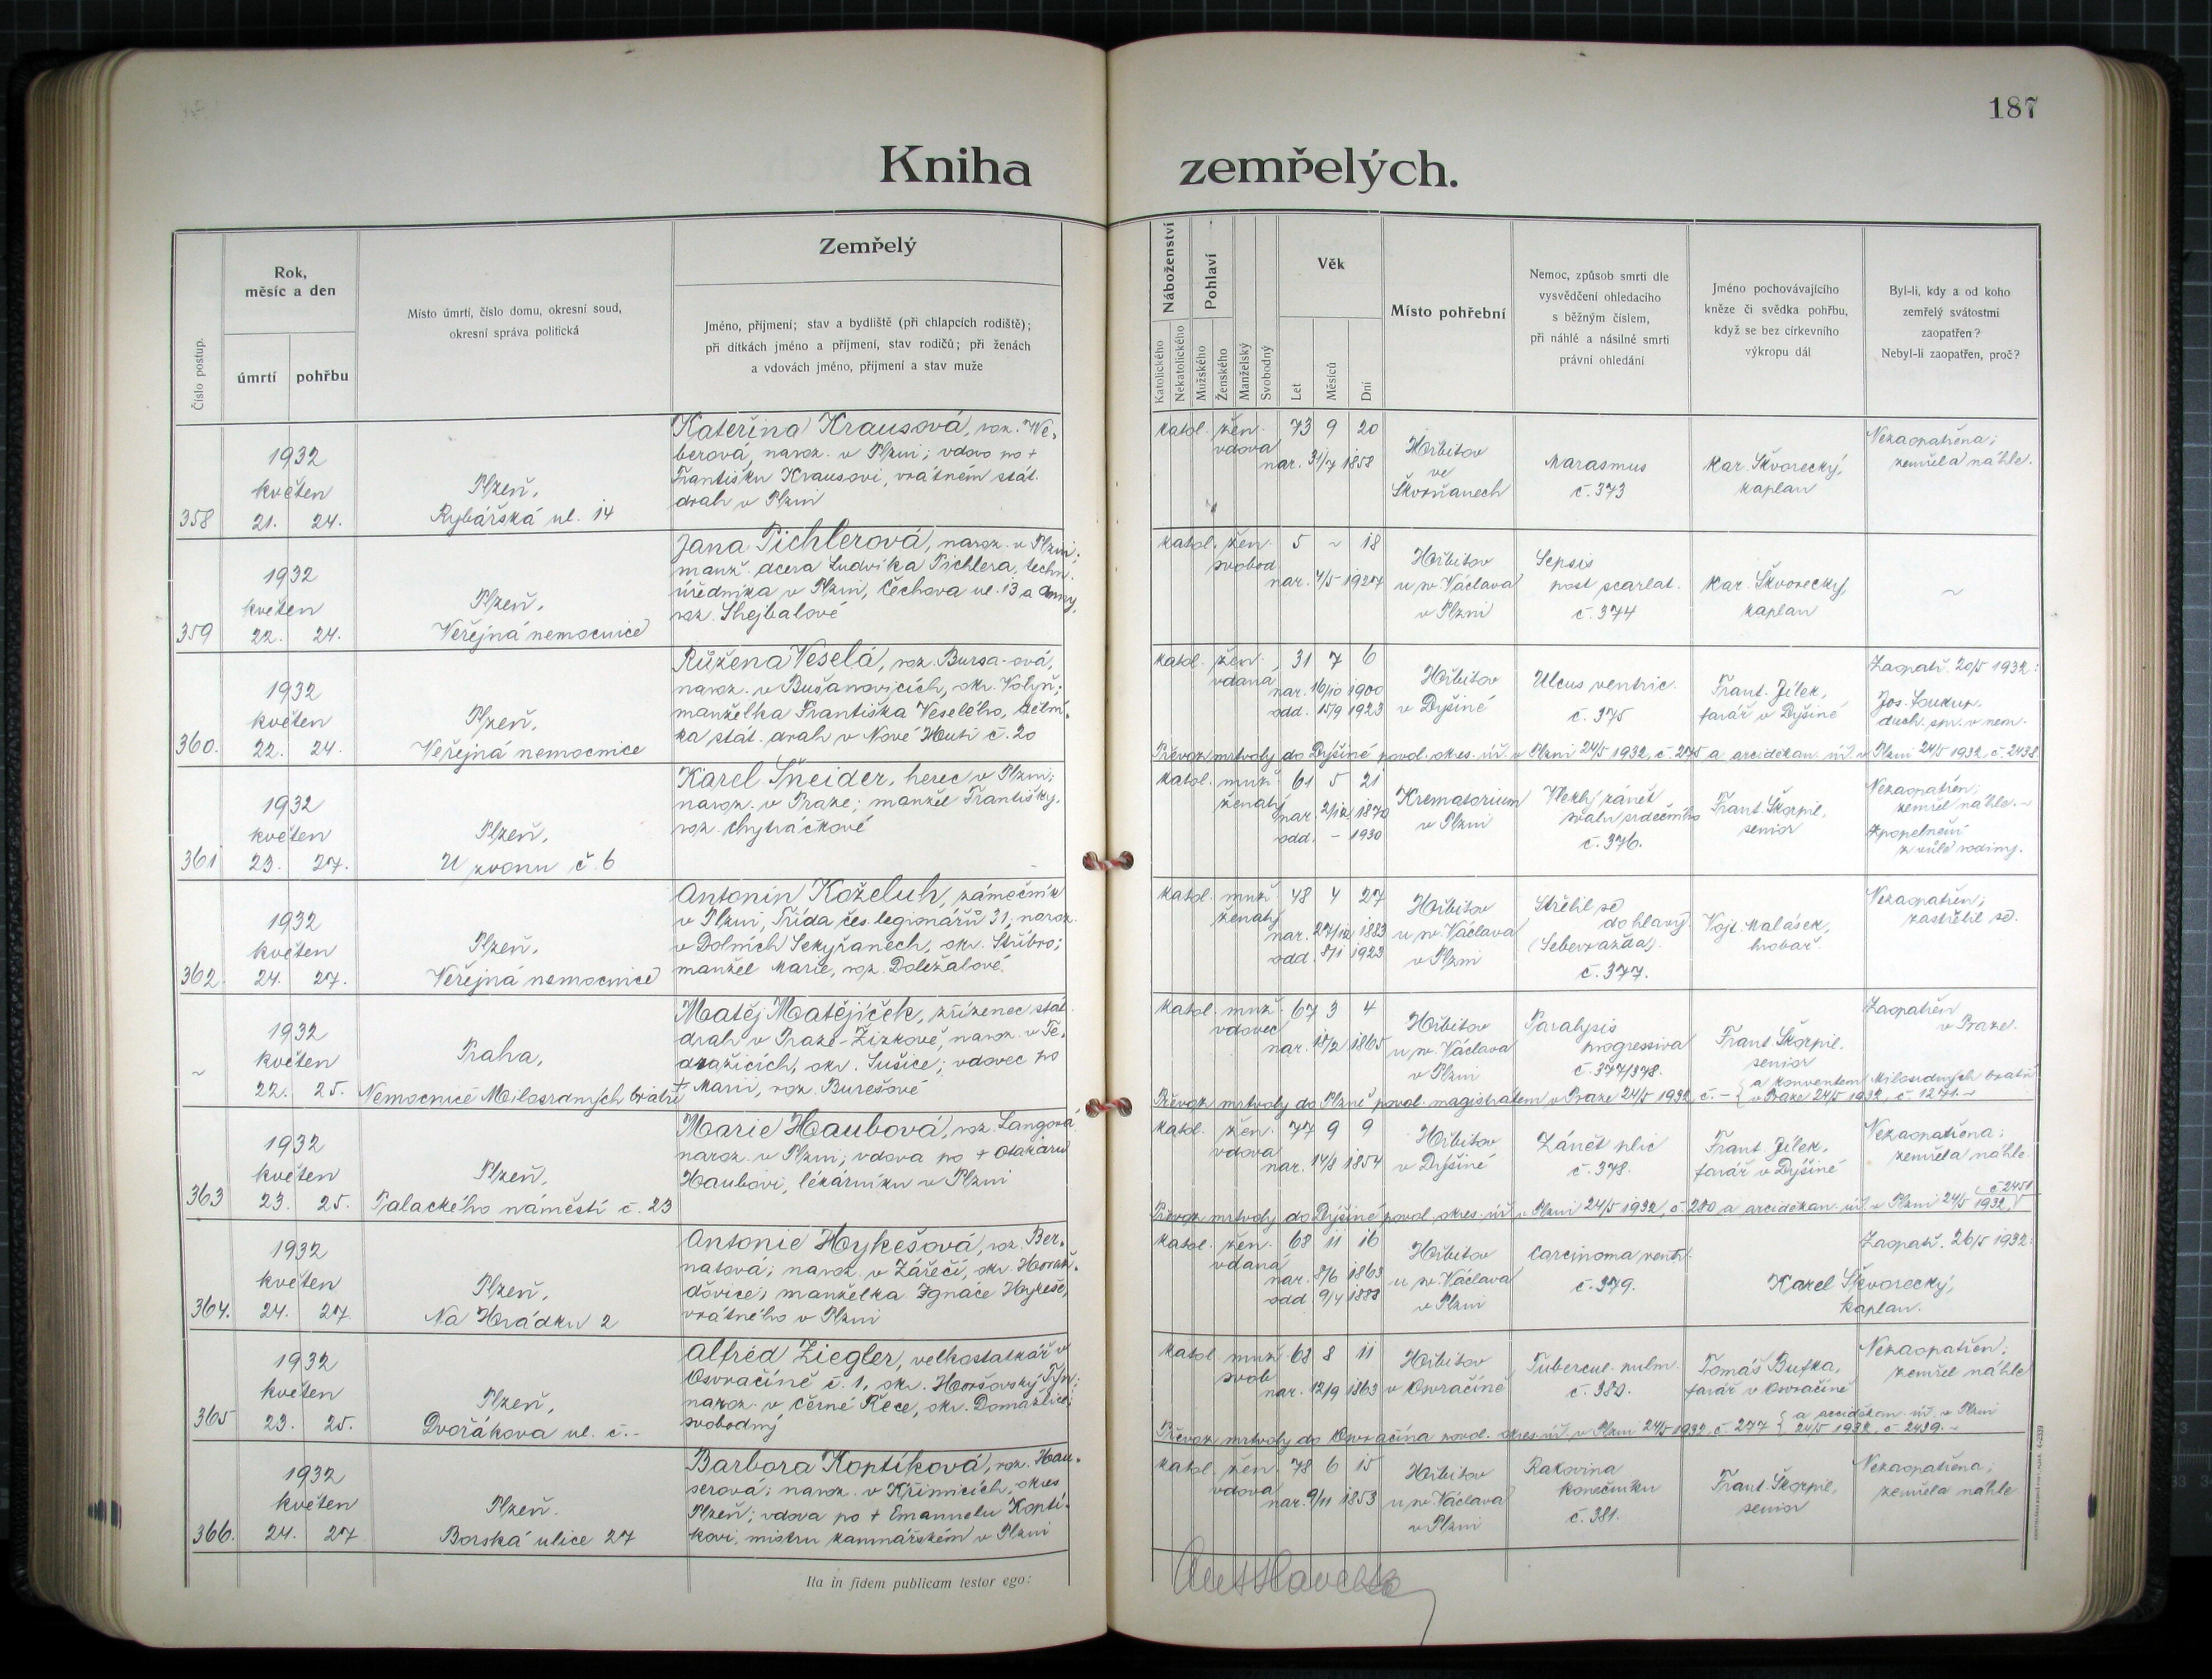 187
Kniha zemřelých.
Číslo postup.
Rok,
měsíc a den
úmrtí
pohřbu
Místo úmrtí, číslo domu, okresní soud,
okresní správa politická
Zemřelý
Jméno, příjmení; stav a bydliště (při chlapcích rodiště);
při dítkách jméno a příjmení, stav rodičů; při ženách
a vdovách jméno, příjmení a stav muže
Náboženství
Katolického
Nekatolického
Pohlaví
Mužského
Ženského
Manželský
Svobodný
Věk
Let
Měsíců
Dní
Místo pohřební
Nemoc, způsob smrti dle
vysvědčení ohledacího
s běžným číslem,
při náhlé a násilné smrti
právní ohledání
Jméno pochovávajícího
kněze či svědka pohřbu,
když se bez církevního
výkropu dál
Byl-li, kdy a od koho
zemřelý svátostmi
zaopatřen?
Nebyl-li zaopatřen, proč?
358
1932
květen
21. 24.
Plzeň,
Rybářská ul. 14
Kateřina Krausová, roz. We-
berová, naroz. v Plzni; vdova po +
Františku Krausovi, vrátném stát.
drah v Plzni
katol. žen. 73 9 20
vdova
nar. 31/7 1858
Hřbitov
ve
Škvrňanech
Marasmus
č. 373
Kar. Škvorecký,
kaplan
Nezaopatřena;
zemřela náhle.
359
1932
květen
22. 24.
Plzeň,
Veřejná nemocnice
Jana Pichlerová, naroz. v Plzni;
manž. dcera Ludvíka Pichlera, techn.
úředníka v Plzni, Čechova ul. 13 a Anny,
roz. Shejbalové
katol. žen. 5 ~ 18
svobod.
nar. 4/5 1927
Hřbitov
u sv. Václava
v Plzni
Sepsis
post scarlat.
č. 374
Kar. Škvorecký,
kaplan
~
360.
1932
květen
22. 24.
Plzeň,
Veřejná nemocnice
Růžena Veselá, roz. Bursa-ová,
naroz. v Bušanovicích, okr. Volyň;
manželka Františka Veselého, dělní-
ka stát. drah v Nové Huti č. 20
katol. žen. 31 7 6
vdaná
nar. 16/10 1900
odd. 15/9 1923
Hřbitov
v Dýšině
Ulcus ventric.
č. 375
Frant. Jílek,
farář v Dýšině
Zaopatř. 20/5 1932:
Jos. Soukup,
duch. spr. v nem.
Převoz mrtvoly do Dýšině povol. okres. úř. v Plzni 24/5 1932, č. 275 a arciděkan. úř. v Plzni 24/5 1932, č. 2438.
361
1932
květen
23. 27.
Plzeň,
U zvonu č. 6
Karel Šneider, herec v Plzni;
naroz. v Praze; manžel Františky,
roz. Chytráčkové
katol. muž. 61 5 21
ženatý
nar. 2/12 1870
odd. - 1930
Krematorium
v Plzni
Vleklý zánět
svalu srdečního
č. 376.
Frant. Škorpil,
senior
Nezaopatřen;
zemřel náhle. ~
Zpopelnění
z vůle rodiny.
362.
1932
květen
24. 27.
Plzeň,
Veřejná nemocnice
Antonín Koželuh, zámečník
v Plzni, Třída čes. legionářů 31, naroz.
v Dolních Sekyřanech, okr. Stříbro;
manžel Marie, roz. Doležalové.
katol. muž. 48 4 27
ženatý
nar. 27/12 1883
odd. 8/1 1923
Hřbitov
u sv. Václava
v Plzni
Střelil se
do hlavy.
(Sebevražda).
č. 377.
Vojt. Malásek,
hrobař.
Nezaopatřen;
zastřelil se.
~
1932
květen
22. 25.
Praha,
Nemocnice Milosrdných bratří
Matěj Matějíček, zřízenec stát.
drah v Praze-Žižkově, naroz. v Tě-
dražicích, okr. Sušice; vdovec po
+ Marii, roz. Burešové
katol. muž. 67 3 4
vdovec
nar. 18/2 1865
Hřbitov
u sv. Václava
v Plzni
Paralysis
progressiva
č. 377/378.
Frant. Škorpil,
senior
Zaopatřen
v Praze.
Převoz mrtvoly do Plzně povol. magistrátem v Praze 24/5 1932, č. - { a konventem Milosrdných bratří
v Praze 24/5 1932, č. 1271. ~
363
1932
květen
23. 25.
Plzeň,
Palackého náměstí č. 23
Marie Haubová, roz. Langová
naroz. v Plzni; vdova po + Otakaru
Haubovi, lékárníku v Plzni
katol. žen. 77 9 9
vdova
nar. 14/8 1854
Hřbitov
v Dýšině
Zánět plic
č. 378.
Frant. Jílek,
farář v Dýšině
Nezaopatřena;
zemřela náhle.
Převoz mrtvoly do Dýšině povol. okres. úř. v Plzni 24/5 1932, č. 280 a arciděkan. úř. v Plzni 24/5 1932, č. 2451
364.
1932
květen
24. 27.
Plzeň,
Na Hrádku 2
Antonie Hykešová, roz. Ber-
natová; naroz. v Zářečí, okr. Horaž-
ďovice; manželka Ignáce Hykeše,
vrátného v Plzni
katol. žen. 68 11 16
vdaná
nar. 8/6 1863
odd. 9/4 1888
Hřbitov
u sv. Václava
v Plzni
Carcinoma ventr.
č. 379.
Zaopatř. 26/5 1932:
Karel Škvorecký,
kaplan.
365
1932
květen
23. 25.
Plzeň,
Dvořákova ul. č. -
Alfréd Ziegler, velkostatkář v
Osvračíně č. 1, okr. Horšovský Týn;
naroz. v Černé Řece, okr. Domažlice;
svobodný
katol. muž. 68 8 11
svob.
nar. 12/9 1863
Hřbitov
v Osvračíně
Tubercul. pulm.
č. 380.
Tomáš Bufka,
farář v Osvračíně
Nezaopatřen;
zemřel náhle
Převoz mrtvoly do Osvračína povol. okres. úř. v Plzni 24/5 1932, č. 277 { a arciděkan. úř. v Plzni
24/5 1932, č. 2439. ~
366.
1932
květen
24. 27
Plzeň.
Borská ulice 27
Barbora Koptíková, roz. Hau-
serová; naroz. v Křimicích, okres
Plzeň; vdova po + Emanuelu Koptí-
kovi, mistru kamnářském v Plzni
katol. žen. 78 6 15
vdova
nar. 9/11 1853
Hřbitov
u sv. Václava
v Plzni
Rakovina
konečníku
č. 381.
Frant. Škorpil,
senior
Nezaopatřena;
zemřela náhle.
Ita in fidem publicam testor ego: